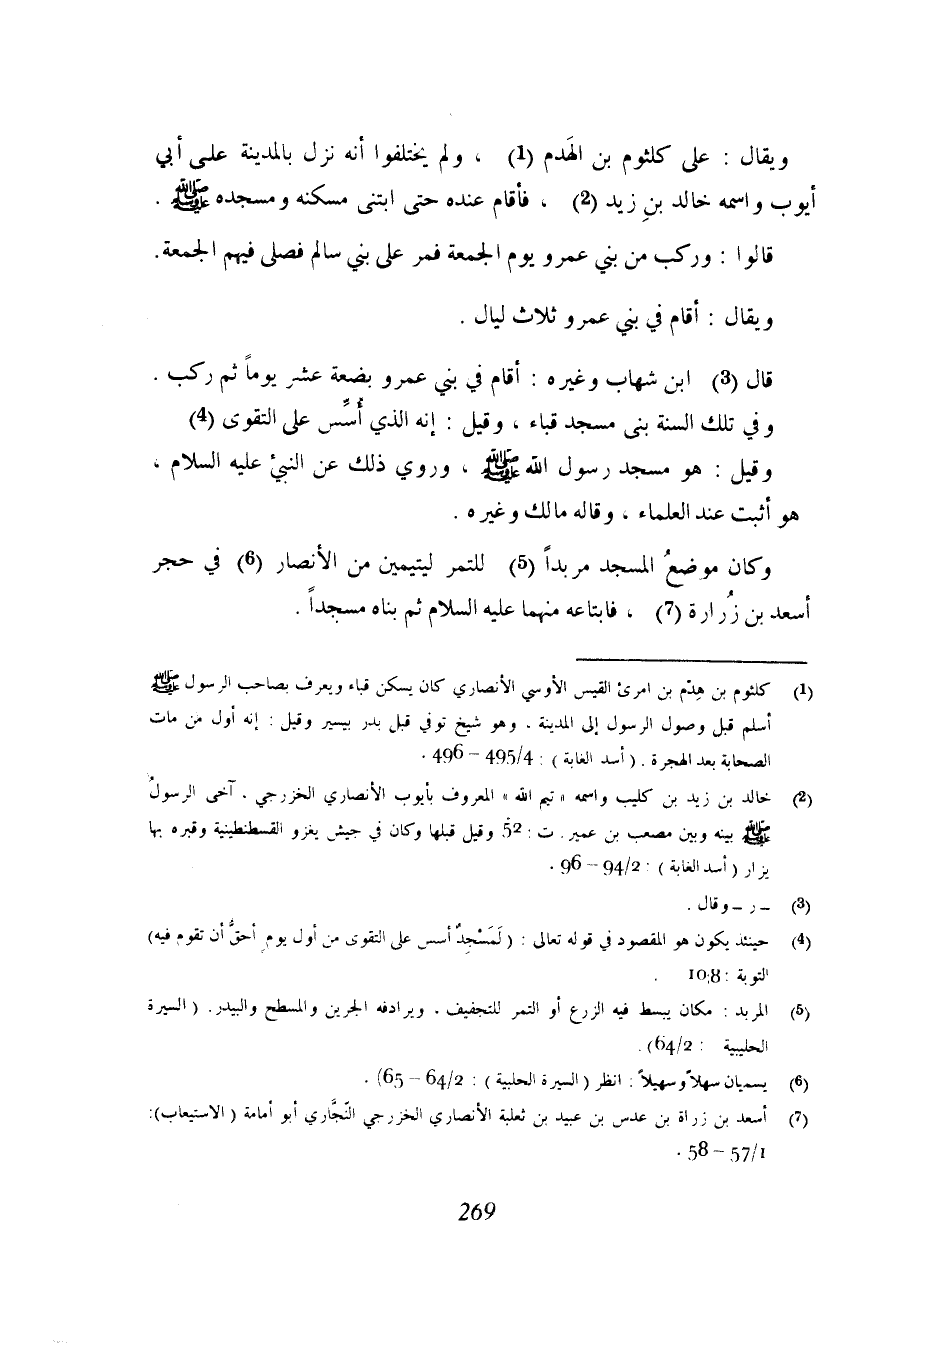 ويقال : على كلثوم بن الهَدم (1) ، ولم يختلفوا أنه نزل بالمدينة على أبي
أيوب واسمه خالد بنِ زيد (2) ، فأقام عنده حتى ابتنى مسكنه ومسجده ﷺ .
قالوا : وركب من بني عمرو يوم الجمعة فمر على بني سالم فصلى فيهم الجمعة.
ويقال : أقام في بني عمرو ثلاث ليال .
قال (3) ابن شهاب وغيره : أقام في بني عمرو بضعة عشر يوماً ثم ركب .
وفي تلك السنة بنى مسجد قباء ، وقيل : إنه الذي أُسِّس على التقوى (4)
وقيل : هو مسجد رسول الله ﷺ ، وروي ذلك عن النبيْ عليه السلام ،
هو أثبت عند العلماء ، وقاله مالك وغيره .
وكان موضعُ المسجد مربداً (5) للتمر ليتيمين من الأنصار (6) في حجر
أسعد بن زُرارة (7) ، فابتاعه منهما عليه السلام ثم بناه مسجداً .
(1) كلثوم بن هِدْم بن امرئ القيس الأوسي الأنصاري كان يسكن قباء ويعرف بصاحب الرسول ﷺ
أسلم قبل وصول الرسول إلى المدينة . وهو شيخ توفي قبل بدر بيسير وقيل : إنه أول من مات
الصحابة بعد الهجرة . ( أسد الغابة ) : 495/4 – 496 .
(2) خالد بن زيد بن كليب واسمه « تيم الله » المعروف بأيوب الأنصاري الخزرجي . آخى الرسولُ
ﷺ بينه وبين مصعب بن عمير . ت : 52 وقيل قبلها وكان في جيش يغزو القسطنطينية وقبره بها
يزار ( أسد الغابة ) : 94/2 – 96 .
(3) – ر – وقال .
(4) حينئذ يكون هو المقصود في قوله تعالى : ( لَمَسْجِدٌ أسس على التقوى من أول يوم أحقُّ أن تقوم فيه)
التوبة : 10:8 .
(5) المربد : مكان يبسط فيه الزرع أو التمر للتجفيف . ويرادفه الجرين والمسطح والبيدر. ( السيرة
الحلبية : 64/2) .
(6) يسميان سهلاً وسهيلاً : انظر ( السيرة الحلبية ) : 64/2 – 65) .
(7) أسعد بن زراة بن عدس بن عبيد بن ثعلبة الأنصاري الخزرجي النّجَّاري أبو أمامة ( الاستيعاب):
57/1 – 58 .
269